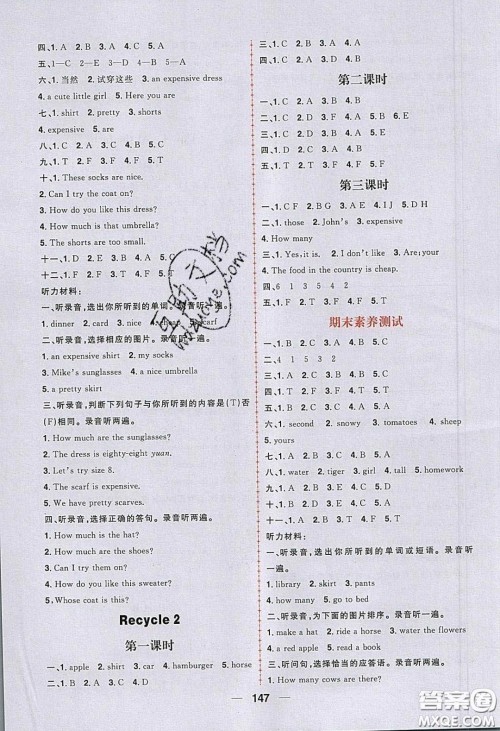 四、1. A 2. B 3. A 4. C 5. A
五、1—C 2—E 3—D 4—B 5—A
六、1. 当然 2. 试穿这些 3. an expensive dress
4. a cute little girl 5. Here you are
七、1. shirt 2. pretty 3. shorts
4. expensive 5. are
八、1. C 2. A 3. D 4. E 5. B
九、1. T 2. F 3. T 4. F 5. F
十、1. These socks are nice.
2. Can I try the coat on?
3. How do you like this dress?
4. How much is that umbrella?
5. The shorts are too small.
十二、1. F 2. T 3. F 4. T 5. F
听力材料:
一、听录音,选出你所听到的单词。录音听一遍。
1. dinner 2. card 4. cheap 5. scarf
二、听录音,选择相应的图片。录音听一遍。
1. an expensive shirt 2. my scarf
3. Mike's sunglasses 4. a nice umbrella
5. a pretty skirt
三、听录音,判断下列句子与你所听到的内容是(T)否
(F)相同。录音听两遍。
1. How much are the sunglasses?
2. The dress is eighty-eight yuan.
3. Let's try size 8.
4. The scarf is expensive.
5. We have pretty scarves.
四、听录音,选择正确的答句。录音听两遍。
1. How much is the hat?
2. How much are these shoes?
3. Can I try them on?
4. How do you like this sweater?
5. Whose coat is this?
Recycle 2
第一课时
一、1. apple 2. shirt 3. car 4. hamburger 5. horse
二、1. C 2. A 3. C 4. A 5. B
三、1. C 2. B 3. C 4. A 5. B
四、1. C 2. A 3. E 4. B 5. D
第二课时
一、1. C 2. F 3. A 4. D 5. B 6. E
二、1. C 2. B 3. B 4. C
三、1. B 2. A 3. A 4. B 5. B
四、1. C 2. A 3. D 4. E 5. B
五、1. T 2. F 3. F 4. T 5. T
第三课时
一、1. CF 2. BG 3. AE 4. IJ 5. DH
二、1. those 2. John's 3. expensive
4. How many
三、1. Yes, it is. 2. I don't like 3. Are; your
4. The food in the country is cheap.
四、6 1 3 5 4 2
五、1. T 2. F 3. T 4. F 5. T
期末素养测试
一、1. A 2. B 3. C 4. A 5. C
二、4 1 5 3 2
三、1. B 2. C 3. B 4. A 5. C
四、1. F 2. T 3. F 4. T 5. T
五、1. A 2. A 3. C 4. B 5. B
六、1. second 2. snowy 3. tomatoes 4. sheep
5. yours
七、1. C 2. A 3. A 4. C 5. B
八、1. water 2. tiger 3. girl 4. tall 5. homework
九、1. C 2. A 3. B 4. B 5. C
十、1. C 2. A 3. D 4. B 5. E
十一、1. T 2. F 3. F 4. F 5. T
听力材料:
一、听录音,选出你所听到的单词或短语。录音听
一遍。
1. library 2. skirt 3. pants
4. how many 5. go to bed
二、听录音,为下面的图片排序。录音听两遍。
make a hat ride a horse water the flowers
read a book see a horse
三、听问句,选择恰当的应答语。录音听两遍。
1. How many cows are there?
147